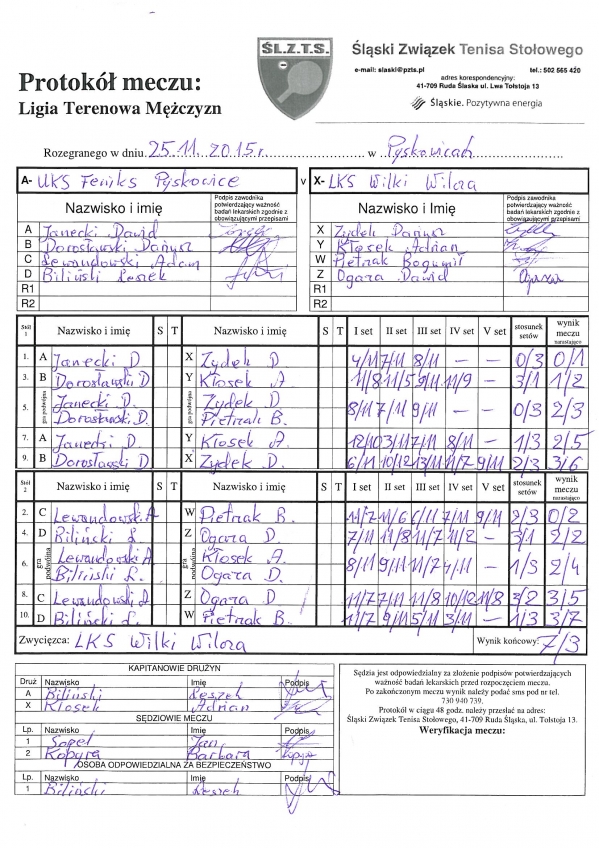 ŚL.Z.T.S.
Śląski Związek Tenisa Stołowego
e-mail: slaski@pzts.pl tel.: 502 565 420
adres korespondencyjny:
41-709 Ruda Śląska ul. Lwa Tołstoja 13
Śląskie. Pozytywna energia
Protokół meczu:
Ligia Terenowa Mężczyzn
Rozegranego w dniu 25.11.2015r. w Pyskowicach
A- UKS Feniks Pyskowice v X- LKS Wilki Wilcza
Nazwisko i Imię Podpis zawodnika potwierdzający ważność badań lekarskich zgodnie z obowiązującymi przepisami Nazwisko i Imię Podpis zawodnika potwierdzający ważność badań lekarskich zgodnie z obowiązującymi przepisami
A Janecki Dawid X Zydek Dariusz
B Dorosławski Dariusz Y Kłosek Adrian
C Lewandowski Adam W Pietrzak Bogumił
D Biliński Leszek Z Ogara Dawid
R1 R1
R2 R2
Stół 1 Nazwisko i imię S T Nazwisko i imię S T I set II set III set IV set V set stosunek setów wynik meczu narastająco
1. A Janecki D. X Zydek D. 4/11 7/11 8/11 – – 0/3 0/1
3. B Dorosławski D. Y Kłosek A. 11/8 11/5 9/11 11/9 – 3/1 1/2
5. gra podwójna Janecki D. Zydek D. 8/11 7/11 9/11 – – 0/3 2/3
Dorosławski D. Pietrzak B.
7. A Janecki D. Y Kłosek A. 12/10 3/11 7/11 8/11 – 1/3 2/5
9. B Dorosławski D. X Zydek D. 6/11 10/12 13/11 11/7 9/11 2/3 3/6
Stół 2 Nazwisko i imię S T Nazwisko i imię S T I set II set III set IV set V set stosunek setów wynik meczu narastająco
2. C Lewandowski A W Pietrzak B. 11/7 11/6 6/11 7/11 9/11 2/3 0/2
4. D Biliński L. Z Ogara D. 7/11 11/8 11/7 11/2 – 3/1 2/2
6. gra podwójna Lewandowski A Kłosek A. 8/11 9/11 11/7 4/11 – 1/3 2/4
Biliński L. Ogara D.
8. C Lewandowski A. Z Ogara D. 11/7 7/11 8/11 10/12 11/8 3/2 3/5
10. D Biliński L. W Pietrzak B. 11/7 9/11 5/11 – 1/3 3/7
Zwycięzca: LKS Wilki Wilcza Wynik końcowy: 7/3
KAPITANOWIE DRUŻYN
Druż Nazwisko Imię Podpis
A Biliński Leszek
X Kłosek Adrian
SĘDZIOWIE MECZU
Lp. Nazwisko Imię Podpis
1 Sapel Jan
2 Kopyra Barbara
OSOBA ODPOWIEDZIALNA ZA BEZPIECZEŃSTWO
Lp. Nazwisko Imię Podpis
1 Biliński Leszek
Sędzia jest odpowiedzialny za złożenie podpisów potwierdzających
ważność badań lekarskich przed rozpoczęciem meczu.
Po zakończonym meczu wynik należy podać sms pod nr tel.
730 940 739.
Protokół w ciągu 48 godz. należy przesłać na adres:
Śląski Związek Tenisa Stołowego, 41-709 Ruda Śląska, ul. Tołstoja 13.
Weryfikacja meczu: